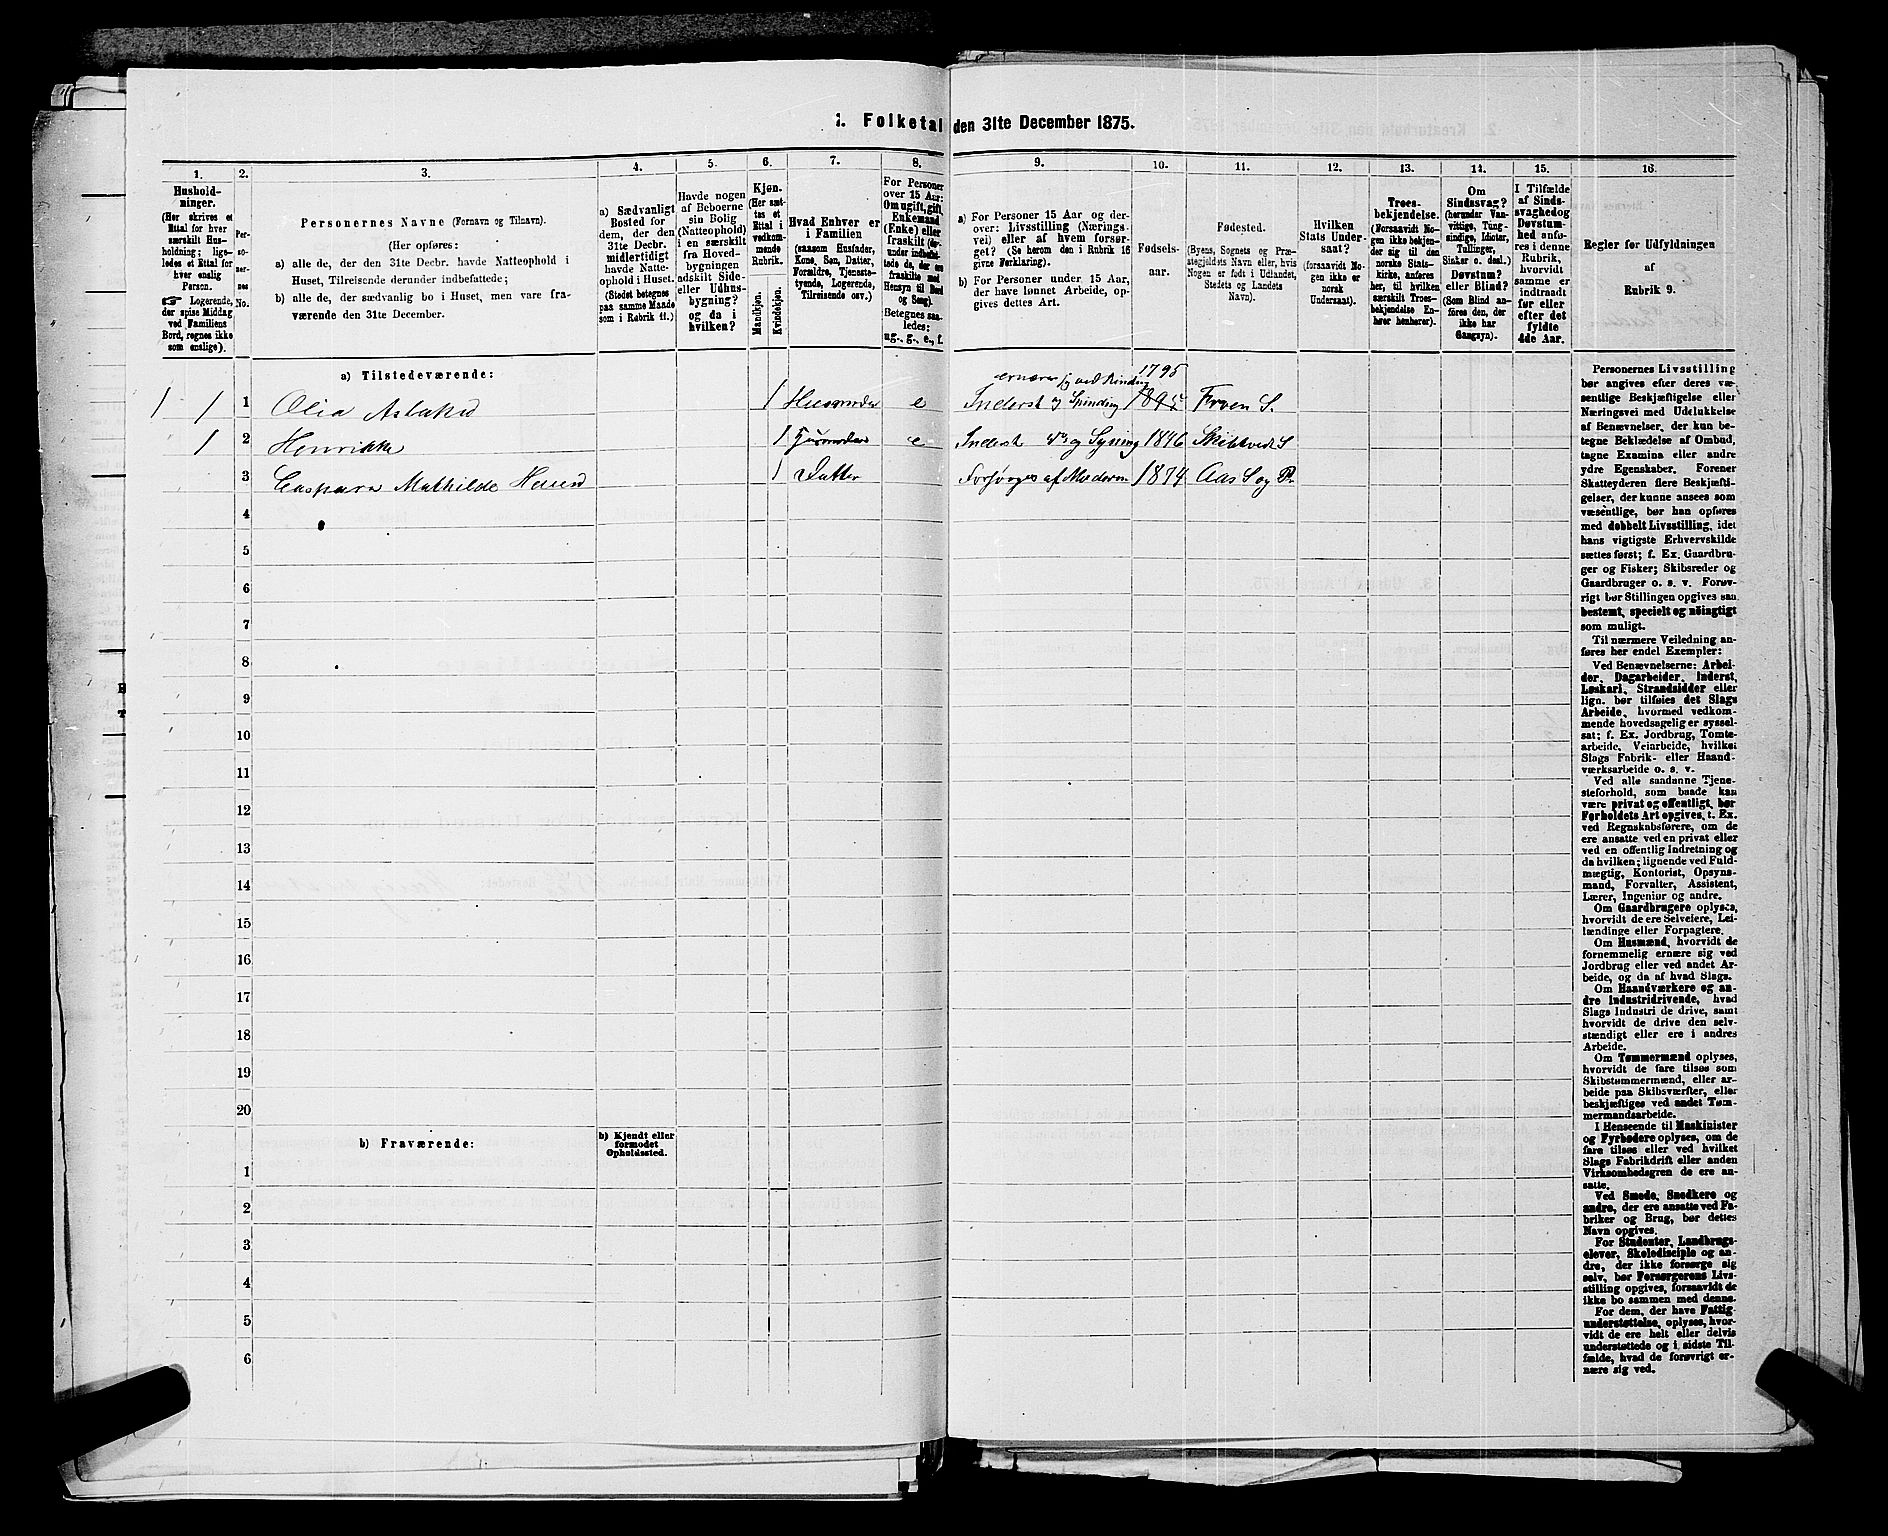 1. Folketal den 31te December 1875.
1.
Hushold-
ninger.
(Her skrives et
Ettal for hver
særskilt Hus-
holdning; lige-
ledes et Ettal for
hver enslig
Person.
☞ Logerende,
der spise Middag
ved Familiens
Bord, regnes ikke
som enslige).
2.
Per-
so-
ner-
nes
No.
3.
Personernes Navne (Fornavn og Tilnavn).
(Her opføres:
a) alle de, der den 31te Decbr. havde Natteophold i
Huset, Tilreisende derunder indbefattede;
b) alle de, der sædvanlig bo i Huset, men vare fra-
værende den 31te December.
4.
a) Sædvanligt
Bosted for
dem, der den
31te Decbr.
midlertidigt
havde Natte-
ophold i Huset.
(Stedet betegnes
paa samme Maade
som i Rubrik 11.)
5.
Havde nogen
af Beboerne
sin Bolig
(Natteophold)
i en særskilt
fra Hoved-
bygningen
adskilt Side
eller Udhus-
bygning?
og da i
hvilken?
6.
Kjøn.
(Her sæt-
tes et
Ettal i
vedkom-
mende
Rubrik.
Mandkjøn.
Kvindekjøn.
7.
Hvad Enhver er
i Familien
(saasom Husfader,
Kone, Søn, Datter,
Forældre, Tjeneste-
tyende, Logerende,
Tilreisende osv.)
8.
For Personer
over 15 Aar:
Om ugift, gift,
Enkemand
(Enke) eller
fraskilt (der-
under indbefat-
tede de, der ere
fraskilte med
Hensyn til Bord
og Seng).
Betegnes saa-
ledes:
ug., g., e., f.
9.
a) For Personer 15 Aar og der-
over: Livsstilling (Nærings-
vei) eller af hvem forsør-
get? (Se herom den i Rubrik 16
givne Forklaring).
b) For Personer under 15 Aar,
der have lønnet Arbeide, op-
gives dettes Art.
10.
Fødsels-
aar.
11.
Fødested.
(Byens, Sognets og Præ-
stegjeldets Navn eller, hvis
Nogen er født i Udlandet,
Stedets og Landets
Navn).
12.
Hvilken
Stats Under-
saat?
(forsaavidt No-
gen ikke er
norsk
Undersaat).
13.
Troes-
bekjendelse.
(Forsaavidt No-
gen ikke bekjen-
der sig til den
norske Stats-
kirke, anføres
her, til hvilken
særskilt Troes-
bekjendelse En-
hver henhører).
14.
Om
Sindssvag?
(herunder Van-
vittige, Tung-
sindige, Idioter,
Tullinger,
Sinker o. desl.)
Døvstum?
eller Blind?
(Som Blind an-
føres den, der
ikke har
Gangsyn).
15.
I Tilfælde
af Sinds-
svaghed og
Døvstum-
hed anfø-
res i denne
Rubrik,
hvorvidt
samme er
indtraadt
før eller
efter det
fyldte
4de Aar.
16.
Regler for Udfyldningen
af
Rubrik 9.
a) Tilstedeværende:
ernærer sig ved Binding 1795
1 1 1 Olia Aslaksd 1 Husmoder e Inderst og Spinding Froen S.
1 2 Henrikke 1 Husmoder e Inderst do og Syning 1846 Skibtved S
3 Caspara Mathilde 1 Datter Forsørges af Moderen 1874 Aas S og P.
4
5
6
7
8
9
10
11
12
13
14
15
16
17
18
19
20
b) Fraværende:
b) Kjendt eller
formodet
Opholdssted.
1
2
3
4
5
6
Personernes Livsstilling
bør angives efter deres væ-
sentlige Beskjæftigelse eller
Næringsvei med Udelukkelse
af Benævnelser, der kun be-
tegne Beklædelse af Ombud,
tagne Examina eller andre
ydre Egenskaber. Forener
Skatteyderen flere Beskjæfti-
gelser, der kunne ansees som
væsentlige, bør han opføres
med dobbelt Livsstilling, idet
hans vigtigste Erhvervskilde
sættes først; f. Ex. Gaardbru-
ger og Fisker; Skibsreder og
Gaardbruger o. s. v. Forøv-
rigt bør Stillingen opgives saa
bestemt, specielt og nøiagtigt
som muligt.
Til nærmere Veiledning an-
føres her endel Exempler:
Ved Benævnelserne: Arbei-
der, Dagarbeider, Inderst,
Løskarl, Strandsidder eller
lign. bør tilføies det Slags
Arbeide, hvormed vedkom-
mende hovedsagelig er syssel-
sat; f. Ex. Jordbrug, Tomte-
arbeide, Veiarbeide, hvilket
Slags Fabrik- eller Haand-
værksarbeide o. s. v.
Ved alle saadanne Tjene-
steforhold, som baade kan
være privat og offentligt, bør
Forholdets Art opgives, t. Ex.
ved Regnskabsførere, om de
ere ansatte ved en privat eller
ved en offentlig Indretning og
da hvilken; lignende ved Fuld-
mægtig, Kontorist, Opsyns-
mand, Forvalter, Assistent,
Lærer, Ingeniør og andre.
Om Gaardbrugere oplyses,
hvorvidt de ere Selveiere, Lei-
lændinge eller Forpagtere.
Om Husmænd, hvorvidt de
fornemmelig ernære sig ved
Jordbrug eller ved andet Ar-
beide, og da af hvad Slags.
Om Haandværkere og an-
dre Industridrivende, hvad
Slags Industri de drive, samt
hvorvidt de drive den selv-
stændigt eller ere i andres
Arbeide.
Om Tømmermænd oplyses,
hvorvidt de fare tilsøs som
Skibstømmermænd, eller ar-
beide paa Skibsværfter, eller
beskjæftiges ved andet Tøm-
mermandsarbeide.
I Henseende til Maskinister
og Fyrbødere oplyses, om de
fare tilsøs eller ved hvilket
Slags Fabrikdrift eller anden
Virksomhedsgren de ere an-
satte.
Ved Smede, Snedkere og
andre, der ere ansatte ved Fa-
briker og Brug, bør dettes
Navn opgives.
For Studenter, Landbrugs-
elever, Skoledisciple og an-
dre, der ikke forsørge sig
selv, bør Forsørgerens Livs-
stilling opgives, forsaavidt de
ikke bo sammen med denne.
For dem, der have Fattig-
understøttelse, oplyses, hvor-
vidt de ere helt eller delvis
understøttede og i sidste Til-
fælde, hvad de forøvrigt er-
nære sig ved.